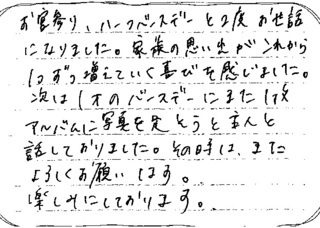 お宮参り、ハーフバースデーと2度お世話
になりました。家族の思い出がこれから
1つずつ増えていく喜びを感じました。
次は1才のバースデーにまた1枚
アルバムに写真を足そうと主人と
話しておりました。その時は、また
よろしくお願いします。
楽しみにしております。